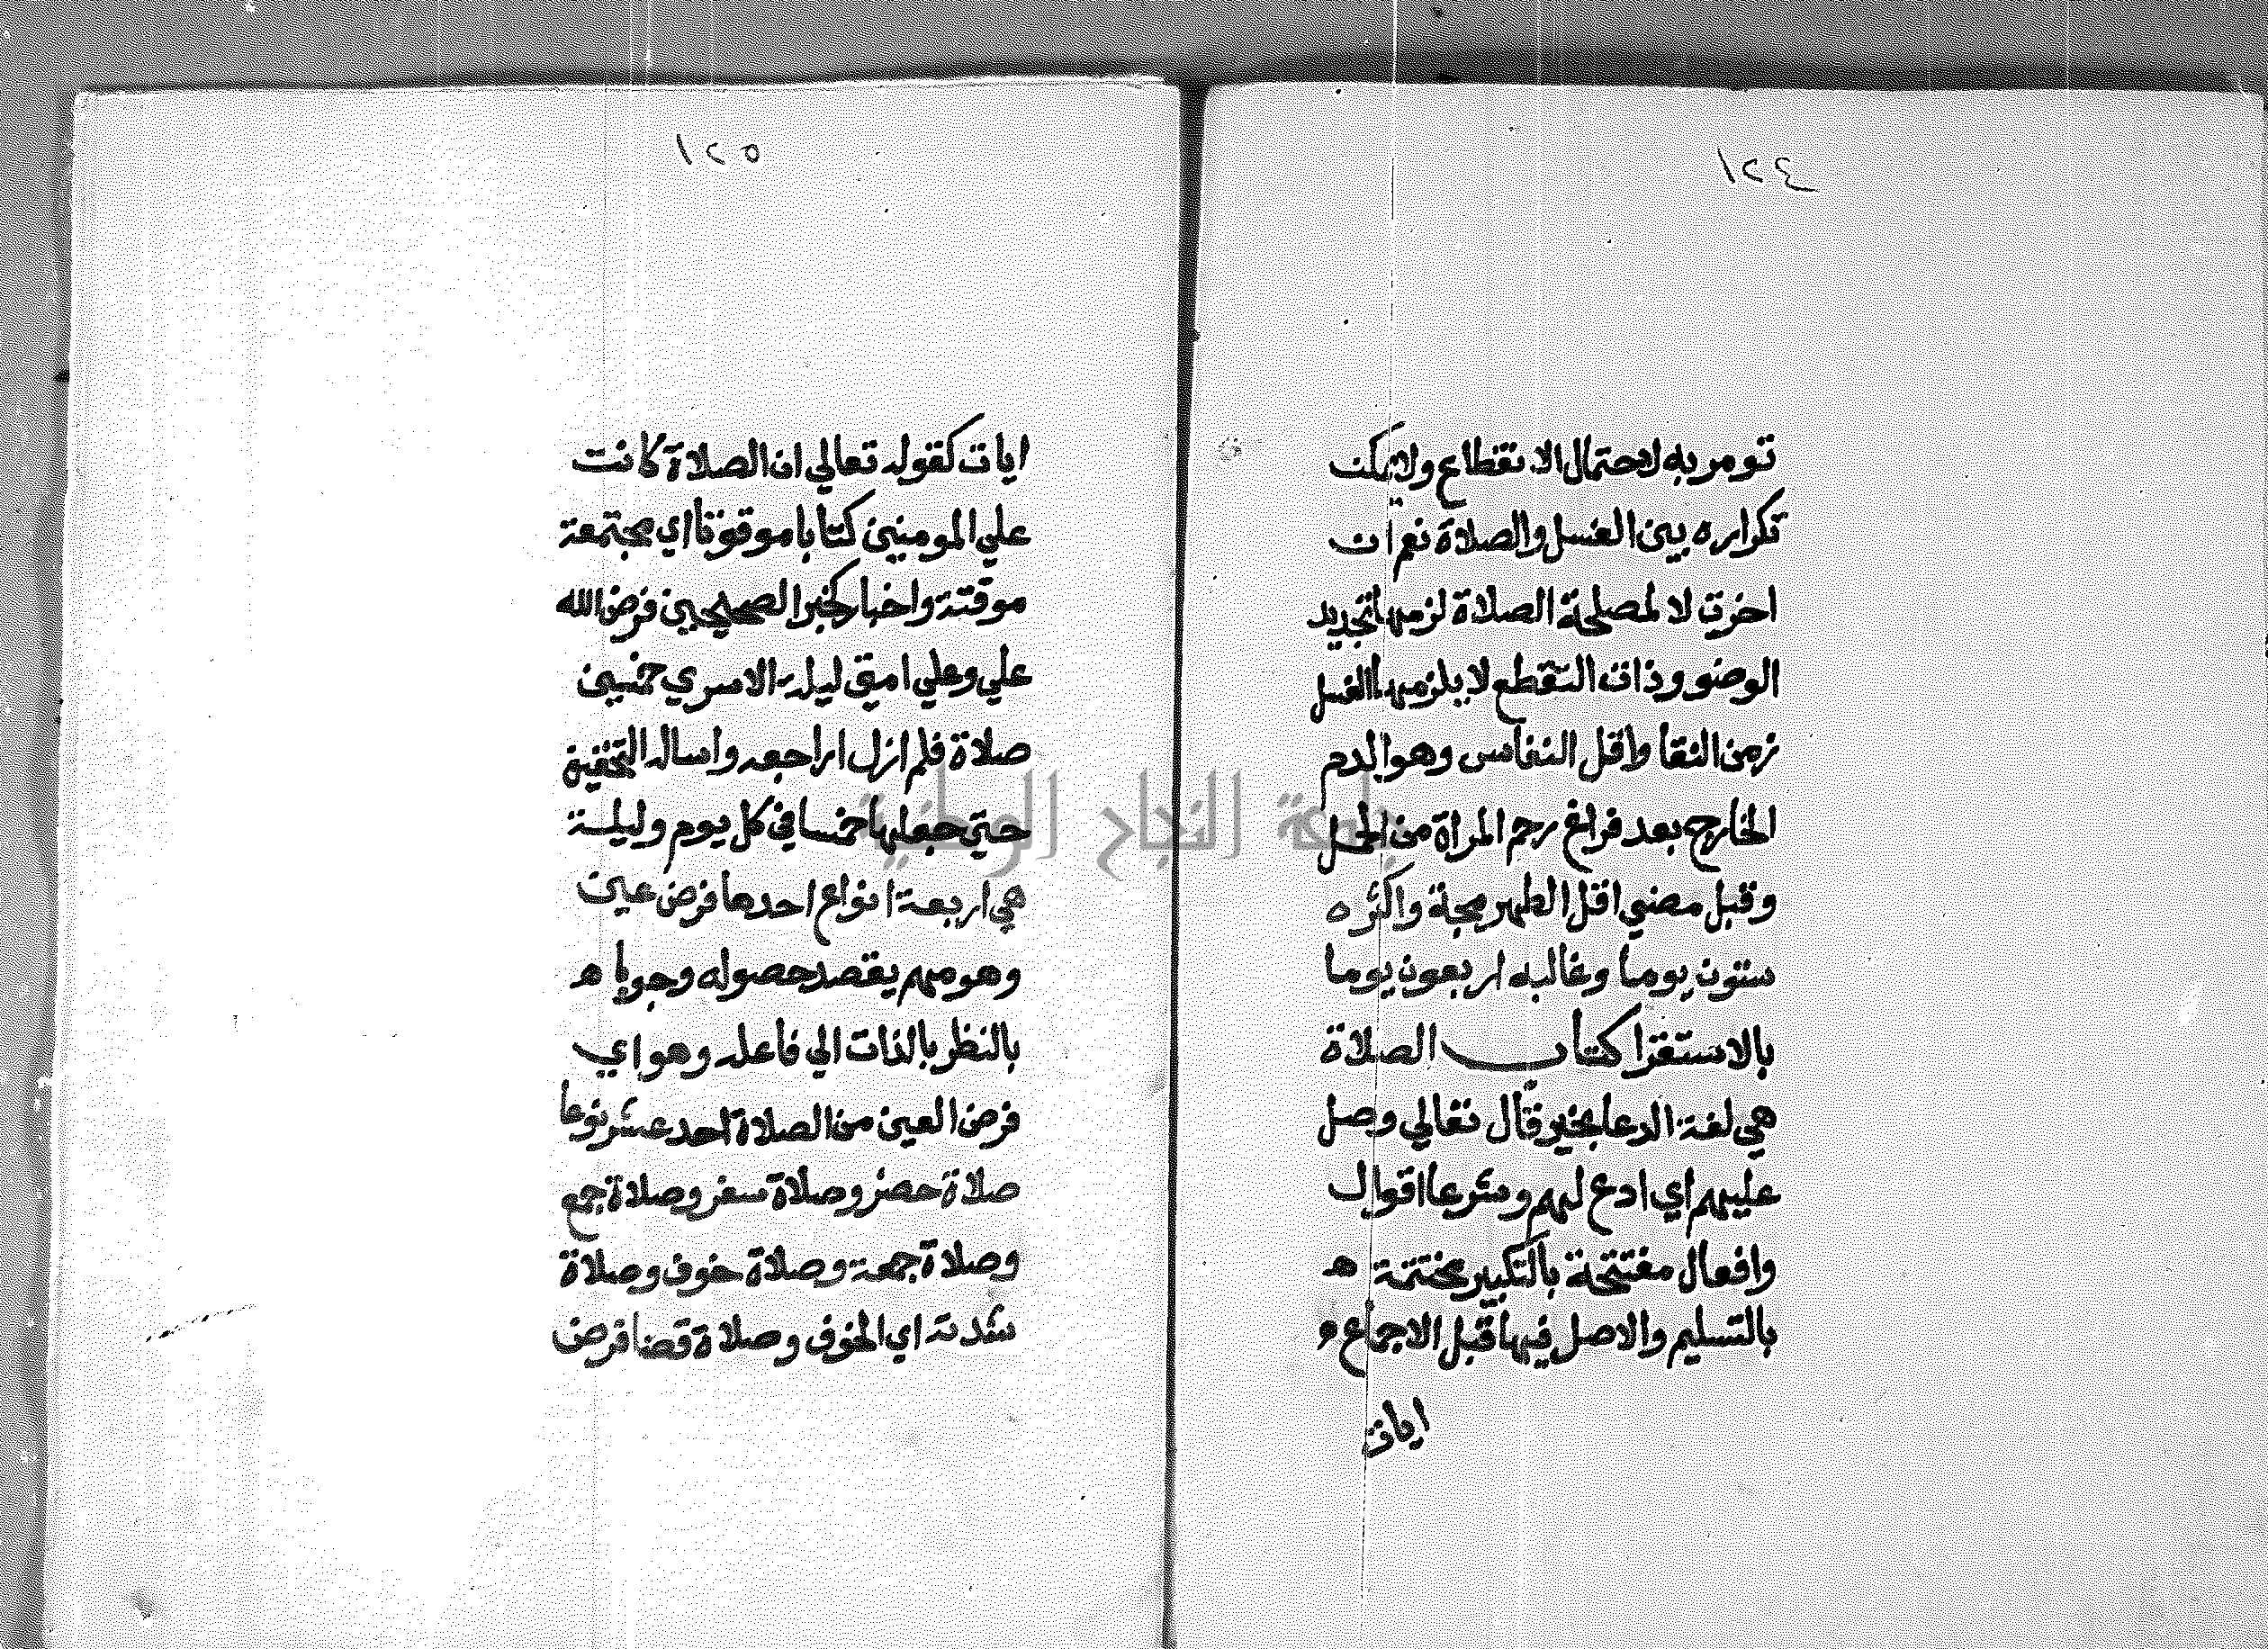 ١٢٤
تومر به لاحتمال الانقطاع ولا يمكن
تكراره بين الغسل والصلاة نعم ان
اخرت لا لمصلحة الصلاة لزمها تجديد
الوضو وذات التقطع لا يلزمها الغسل
زمن النقا واقل النفاس وهو الدم
الخارج بعد فراغ رحم المراة من الحمل
وقبل مضي اقل الطهر مجة واكثره
ستون يوما وغالبه اربعون يوما
بالاستقرا كتاب الصلاة
هي لغة الدعا بخير قال تعالي وصل
عليهم اي ادع لهم وشرعا اقوال
وافعال مفتتحة بالتكبير مختتمة ه
بالتسليم والاصل فيها قبل الاجماع
ايات
١٢٥
ايات كقوله تعالي ان الصلاة كانت
علي المومنين كتابا موقوتا اي مجتمعة
موقتة واخبار كخبر الصحيحين فرض الله
علي وعلي امتي ليلة الاسري خمسين
صلاة فلم ازل اراجعه واساله التخفيف
حتي جعلها خمسا في كل يوم وليلة
هي اربعة انواع احدها فرض عين
وهو مهم يقصد حصوله وجوبا ه
بالنظر بالذات الي فاعله وهو اي
فرض العين من الصلاة احد عشر نوعا
صلاة حضر وصلاة سفر وصلاة جمع
وصلاة جمعة وصلاة خوف وصلاة
شدته اي الخوف وصلاة قضا فرض
جامعة النجاح الوطنية